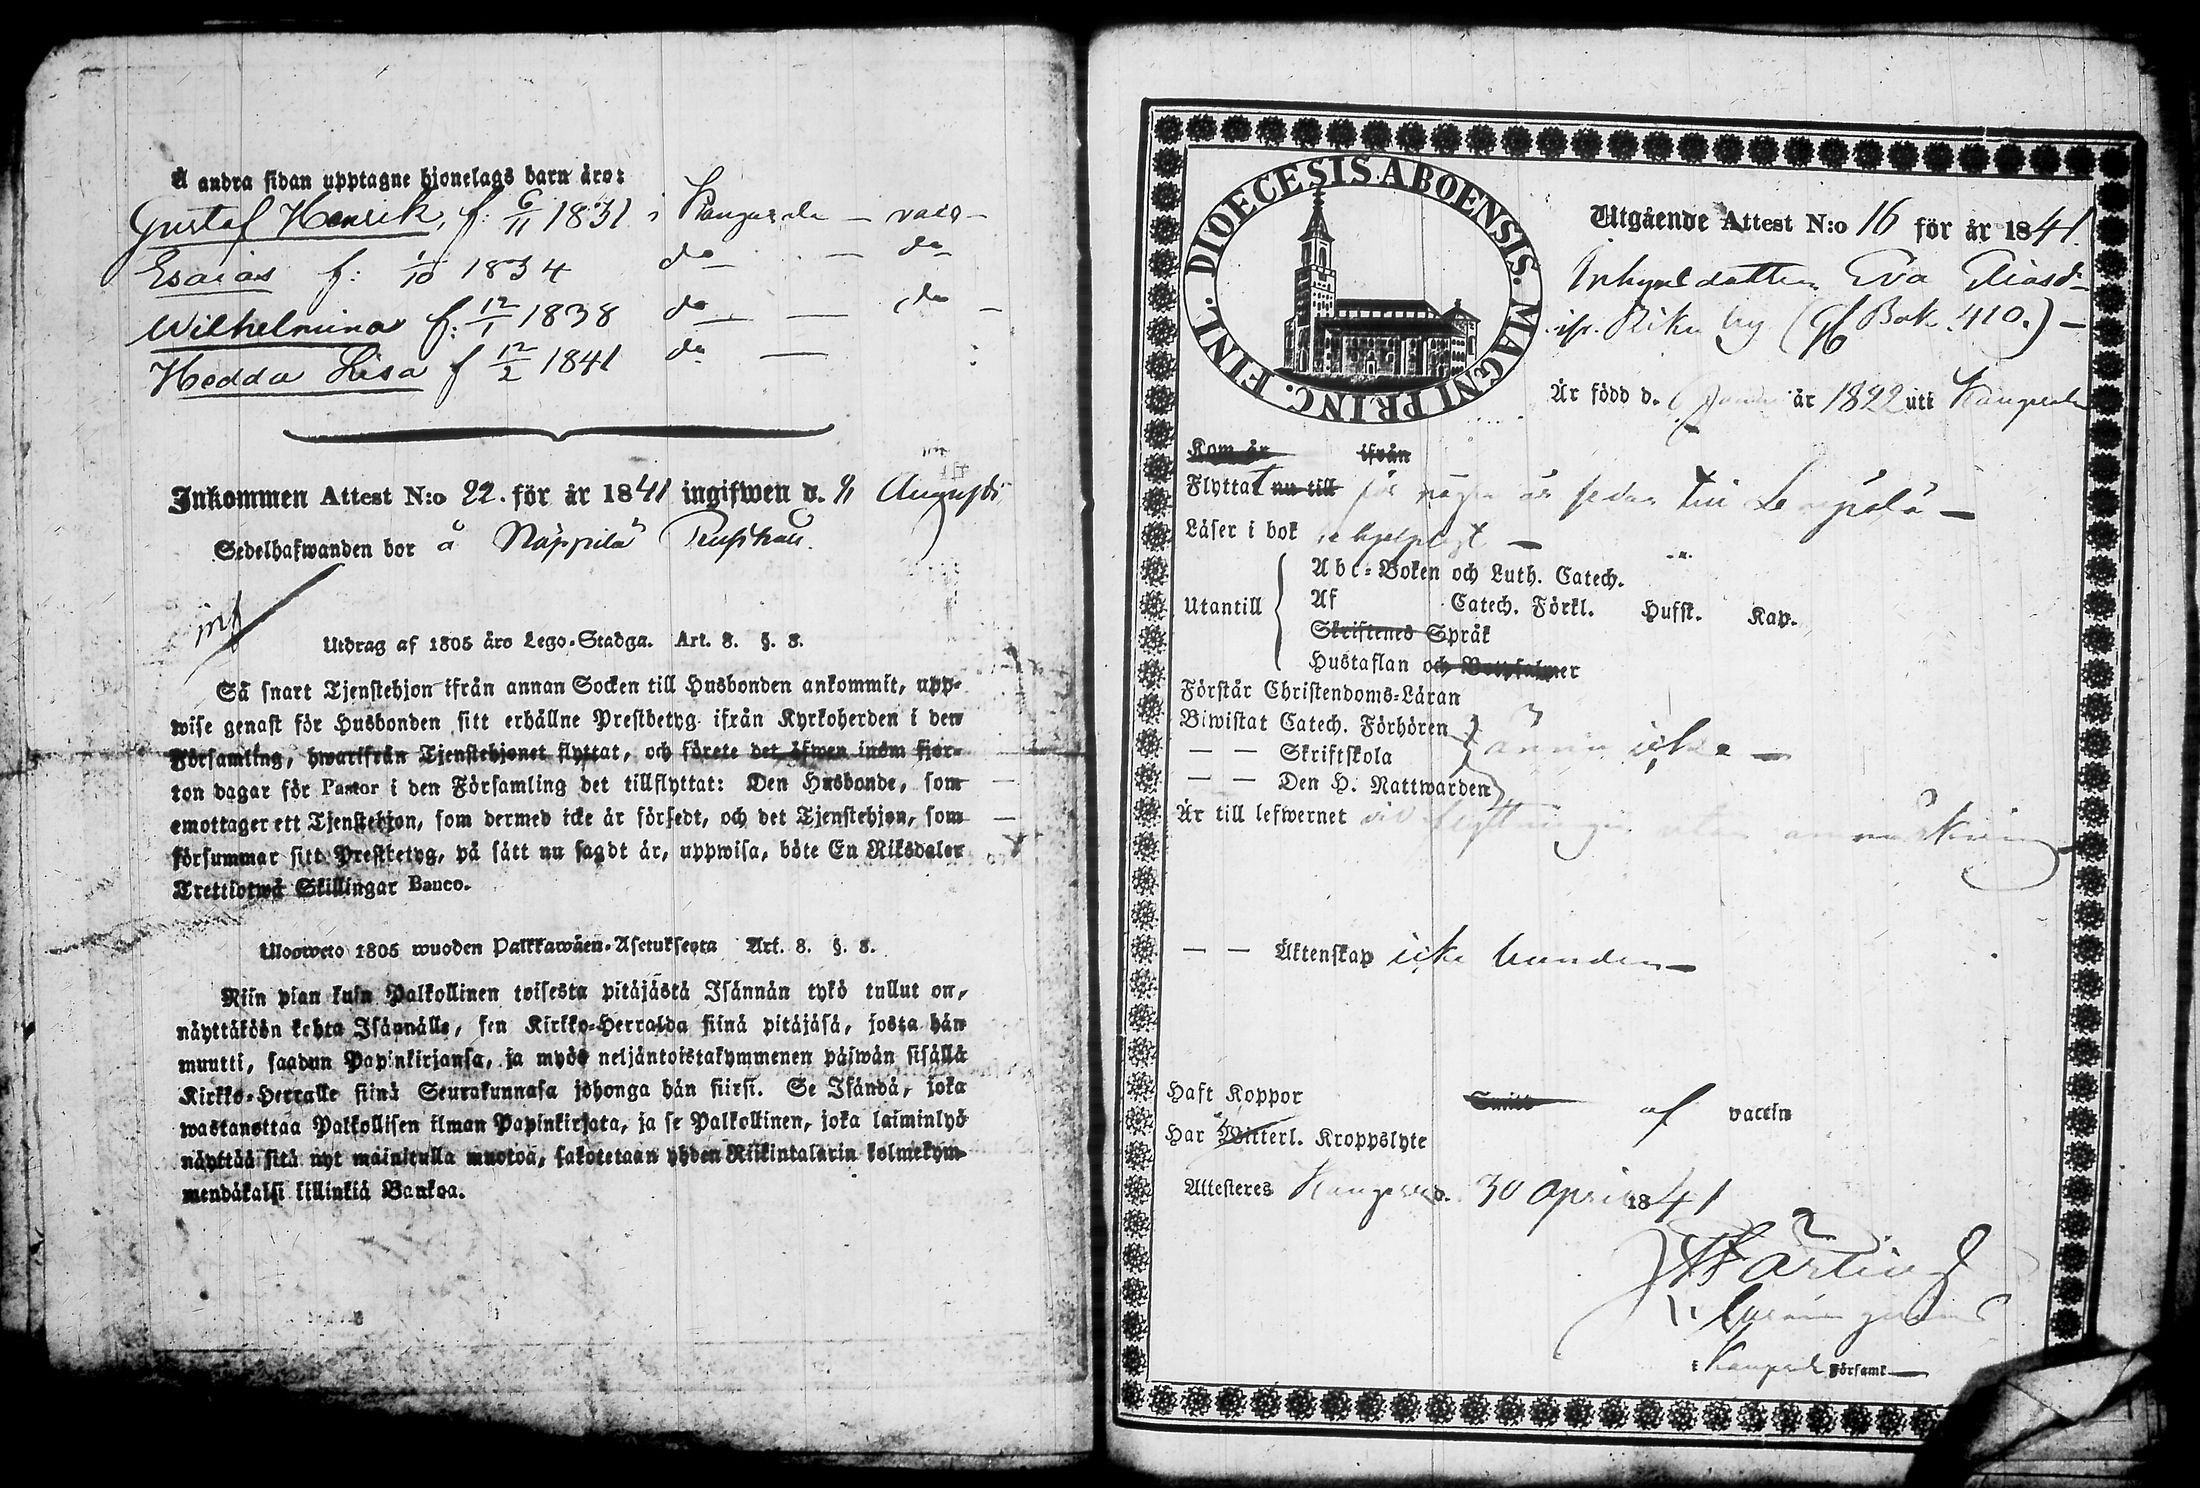 Å andra sidan upptagne hjonelags barn äro:
Gustaf Henrik, f: 6/11 1831 i Kangasala — vacc —
Esaias f: 1/10 1834 do — — do
Wilhelmina f: 12/1 1838 do — — do —
Hedda Lisa f 12/2 1841 do —
Inkommen Attest N:o 22. för år 1841 ingifwen d. Augusti
Sedelhafwanden bor å Näppilä
Utdrag af 1805 års Lego-Stadga. Art. 8. §. 8.
Så snart Tjenstehjon ifrån annan Socken till Husbonden ankommit, upp-
wise genast för Husbonden sitt erhållne Prestbetyg ifrån Kyrkoherden i den
Församling, hwarifrån Tjenstehjonet flyttat, och förete det äfwen inom fjor-
ton dagar för Pastor i den Församling det tillflyttat: Den Husbonde, som
emottager ett Tjenstehjon, som dermed icke är försedt, och det Tjenstehjon, som
försummar sitt Prestbetyg, på sätt nu sagdt är, uppwisa, böte En Riksdaler
Trettiotwå Skillingar Banco.
Ulosweto 1805 wuoden Palkkawäen-Asetuksesta Art. 8. §. 8.
Niin pian kuin Palkollinen toisesta pitäjästä Isännän tykö tullut on,
näyttäköön kohta Isännälle, sen Kirkko-Herralda siinä pitäjäsä, josta hän
muutti, saadun Papinkirjansa, ja myös neljäntoistakymmenen päiwän sisällä
Kirkko-Herralle siinä Seurakunnasa johonga hän siirsi. Se Isändä, joka
wastanottaa Palkollisen ilman Papinkirjata, ja se Palkollinen, joka laiminlyö
näyttää sitä nyt mainitulla muotoa, sakotetaan yhden Riikintalarin kolmekym-
mendäkaksi killinkiä Bankoa.
DIOECESIS ABOENSIS. MAGNI PRINC. FINL.
Utgående Attest N:o 16 för år 1841.
Inhysesdottren Eva Eliasd
ifr. Riku by (cf Bok 410.) —
Är född d. år 1822 uti Kangasala
Kom år ifrån
Flyttat nu till för några år sedan till Lempälä —
Läser i bok hjelpligt —
Utantill
Abc-Boken och Luth. Catech.
Af Catech. Förkl. Hufst. Kap.
Skriftenes Språk
Hustaflan och Botpsalmer
Förstår Christendoms-Läran
Biwistat Catech. Förhören
— — Skriftskola ännu icke —
— — Den H. Nattwarden
Är till lefwernet vid flyttningen utan anmärkning
— — Äktenskap icke bunden —
Haft Koppor Smitt af vaccin
Har Witterl. Kroppslyte
Attesteres Kangasala d. 30 April 1841
i Kangasala Församl —